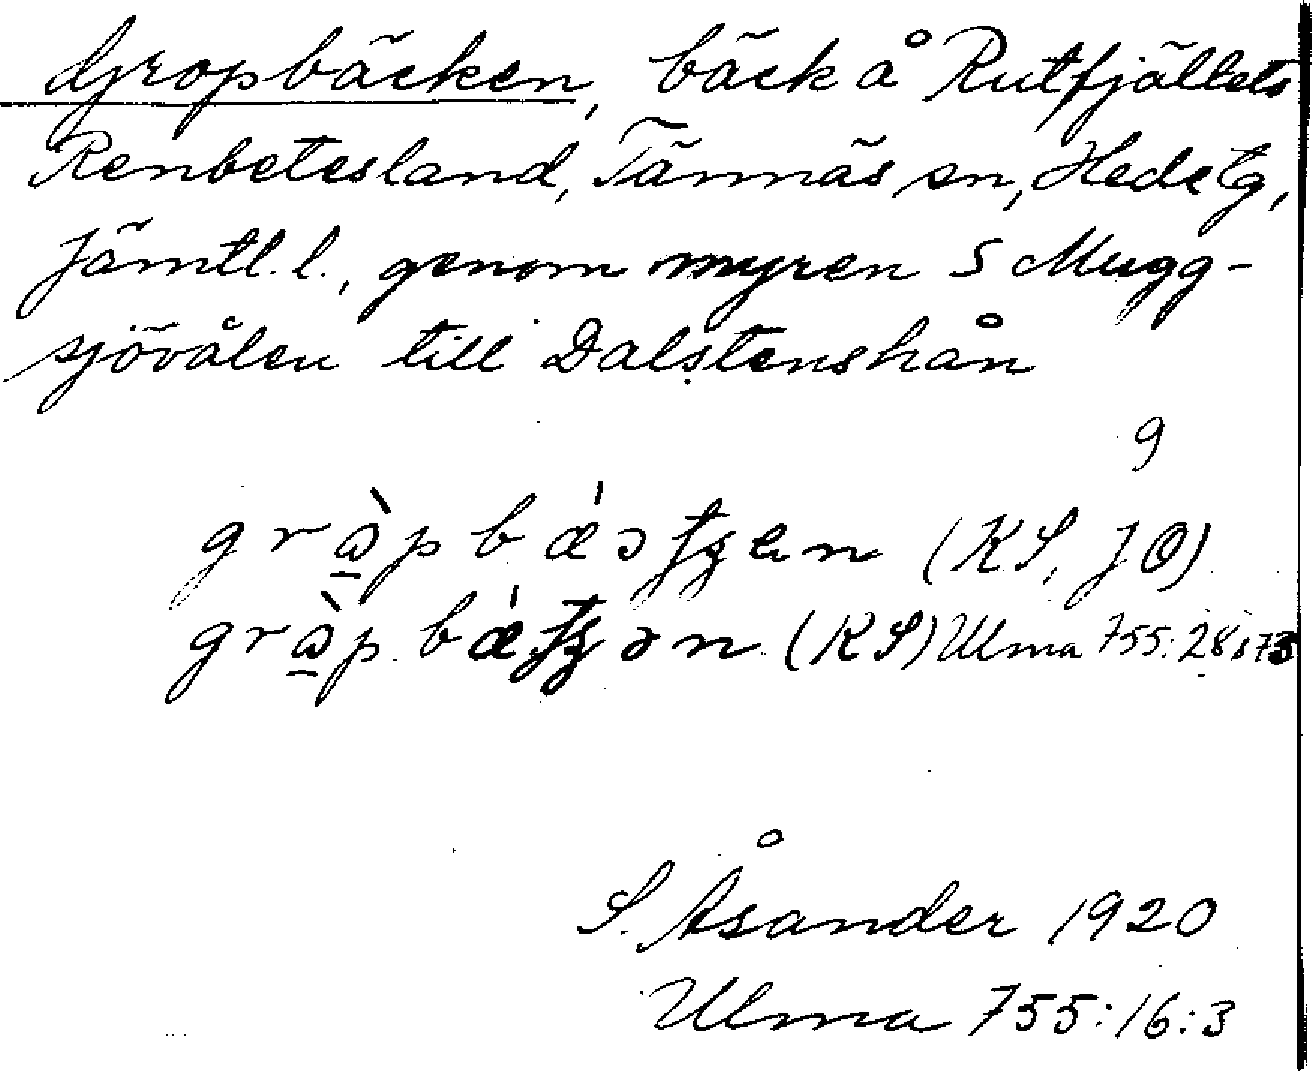 Gropbäcken, bäck å Rutfjällets
Renbetesland, Tännäs sn, Hede tg,
Jämtl. l., genom myren S Mugg-
sjövålen till Dalstenshån
9
(KS, JO)
(KS) Ulma 755:28
S. Åsander 1920
Ulma 755:16:3